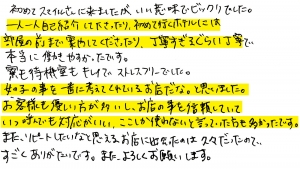 初めてスマイルさんに来ましたが、いい意味でビックリでした。
一人一人自己紹介してくださったり、初めて行くホテルには
部屋の前まで案内してくださったり、丁寧すぎるぐらい丁寧で
本当に働きやすかったです。
寮も待機室もキレイでストレスフリーでした。
女の子の事を一番に考えてくれているお店だな。と思いました。
お客様も優しい方が多いし、お店の事を信頼していて
いつ呼んでも対応がいい、ここしか使わないと言っていた方も多かったです。
また、リピートしたいなと思えるお店に出会えたのは久々だったので、
すごくありがたいです。また、よろしくお願いします。